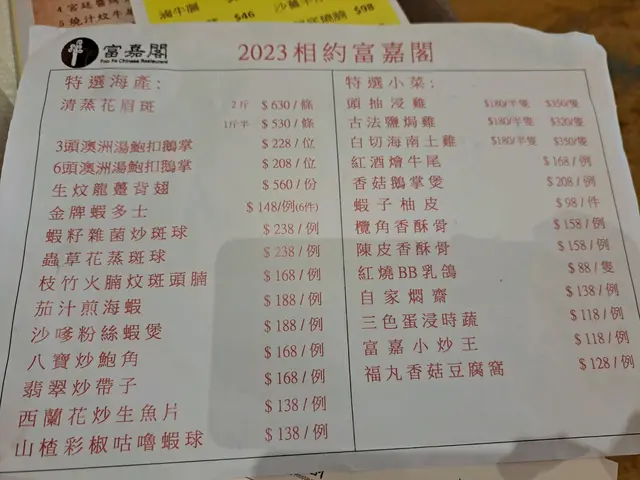 4 宮廷醬
5 燒汁炆牛
滷牛腩
$46
沙薑牛
$98
富嘉閣
Foo Ka Chinese Restaurant
2023相約富嘉閣
特選海產:
清蒸花眉斑 2斤 $630/條
1斤半 $530/條
3頭澳洲湯鮑扣鵝掌 $228/位
6頭澳洲湯鮑扣鵝掌 $208/位
生炆龍躉背翅 $560/份
金牌蝦多士 $148/例(6件)
蝦籽雜菌炒斑球 $238/例
蟲草花蒸斑球 $238/例
枝竹火腩炆斑頭腩 $168/例
茄汁煎海蝦 $188/例
沙嗲粉絲蝦煲 $188/例
八寶炒鮑角 $168/例
翡翠炒帶子 $168/例
西蘭花炒生魚片 $138/例
山楂彩椒咕嚕蝦球 $138/例
特選小菜:
頭抽浸雞 $180/半隻 $350/隻
古法鹽焗雞 $180/半隻 $320/隻
白切海南土雞 $180/半隻 $350/隻
紅酒燴牛尾 $168/例
香菇鵝掌煲 $208/例
蝦子柚皮 $98/件
欖角香酥骨 $158/例
陳皮香酥骨 $158/例
紅燒BB乳鴿 $88/隻
自家燜齋 $138/例
三色蛋浸時蔬 $118/例
富嘉小炒王 $118/例
福丸香菇豆腐窩 $128/例